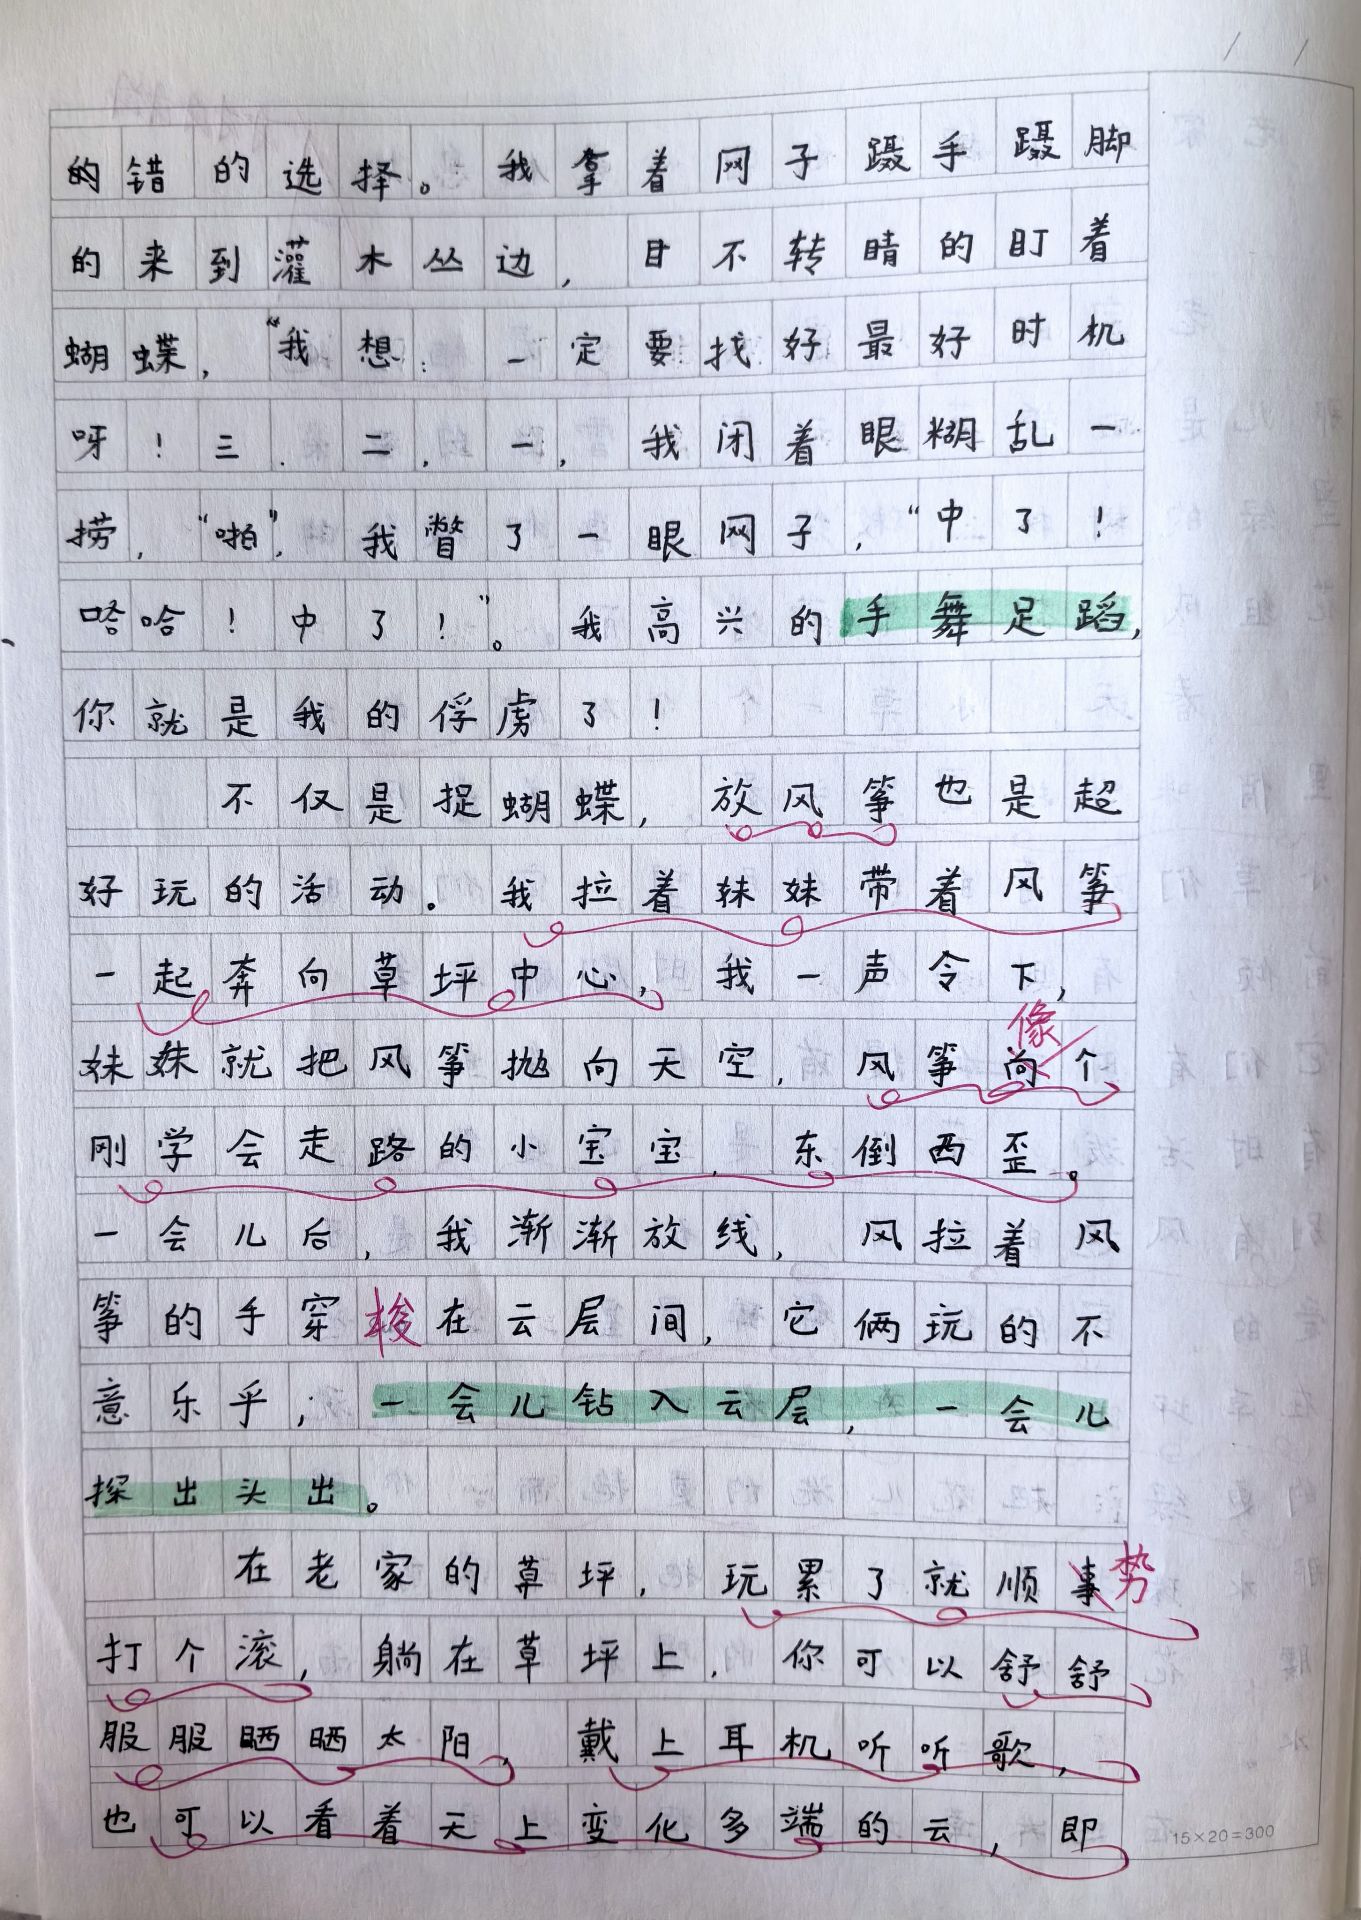 的错的选择。我拿着网子蹑手蹑脚
的来到灌木丛边，目不转睛的盯着
蝴蝶，“我想：一定要找好最好时机
呀！三．二，一，我闭着眼糊乱一
捞，“啪”，我瞥了一眼网子，“中了！
哈哈！中了！”。我高兴的手舞足蹈，
你就是我的俘虏了！
不仅是捉蝴蝶，放风筝也是超
好玩的活动。我拉着妹妹带着风筝
一起奔向草坪中心，我一声令下，
像
妹妹就把风筝抛向天空，风筝向个
刚学会走路的小宝宝，东倒西歪。
一会儿后，我渐渐放线，风拉着风
筝的手穿梭在云层间，它俩玩的不
意乐乎；一会儿钻入云层，一会儿
探出头出。
在老家的草坪，玩累了就顺事势
打个滚，躺在草坪上，你可以舒舒
服服晒晒太阳，戴上耳机听听歌，
也可以看着天上变化多端的云，即
15×20=300